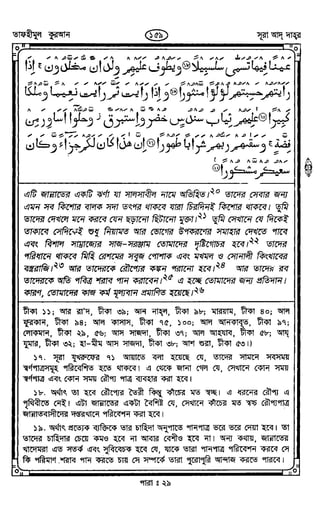 তাফহীমুল কুরআন
১৫৯
সূরা আদ্ দাহর
عَيْنًا فِيهَا تُسَمَّىٰ سَلْسَبِيلًا ⑱ وَيَطُوفُ عَلَيْهِمْ وِلْدَانٌ مُّخَلَّدُونَ ۚ إِذَا
رَأَيْتَهُمْ حَسِبْتَهُمْ لُؤْلُؤًا مَّنثُورًا ⑲ وَإِذَا رَأَيْتَ ثَمَّ رَأَيْتَ نَعِيمًا وَمُلْكًا
كَبِيرًا ⑳ عَالِيَهُمْ ثِيَابُ سُندُسٍ خُضْرٌ وَإِسْتَبْرَقٌ ۖ وَحُلُّوا أَسَاوِرَ مِن
فِضَّةٍ ۚ وَسَقَاهُمْ رَبُّهُمْ شَرَابًا طَهُورًا ㉑ إِنَّ هَٰذَا كَانَ لَكُمْ جَزَاءً وَكَانَ
سَعْيُكُم مَّشْكُورًا ㉒
এটি জান্নাতের একটি ঝর্ণা যা সালসাবীল নামে অভিহিত।২০ তাদের সেবার জন্য
এমন সব কিশোর বালক সদা তৎপর থাকবে যারা চিরদিনই কিশোর থাকবে। তুমি
তাদের দেখলে মনে করবে যেন ছড়ানো ছিটানো মুক্তা।২১ তুমি সেখানে যে দিকেই
তাকাবে সেদিকেই শুধু নিয়ামত আর ভোগের উপকরণের সমাহার দেখতে পাবে
এবং বিশাল সাম্রাজ্যের সাজ-সরঞ্জাম তোমাদের দৃষ্টিগোচর হবে।২২ তাদের
পরিধানে থাকবে মিহি রেশমের সবুজ পোশাক এবং মখমল ও সোনালী কিংখাবের
বস্ত্ররাজি।২৩ আর তাদেরকে রৌপ্যের কঙ্কন পরানো হবে।২৪ আর তাদের রব
তাদেরকে অতি পবিত্র শরাব পান করাবেন।২৫ এ হচ্ছে তোমাদের জন্য প্রতিদান।
কারণ, তোমাদের কাজ কর্ম মূল্যবান প্রমাণিত হয়েছে।২৬
টীকা ১১; আর রা'দ, টীকা ৩৯; আন নাহল, টীকা ৯৮; মারয়াম, টীকা ৪০; আল
ফুরকান, টীকা ৯৪; আল কাসাস, টীকা ৭৫, ১০০; আল আনকাবূত, টীকা ৯৭;
লোকমান, টীকা ২৯, ৫৬; আস সাজদা, টীকা ৩৭; আল আহযাব, টীকা ৫৮; আয
যুমার, টীকা ৩২; হা-মীম আস সাজদা, টীকা ৩৮; আশ শূরা, টীকা ৫৩।)
১৭. সূরা যুখরুফের ৭১ আয়াতে বলা হয়েছে যে, তাদের সামনে সবসময়
স্বর্ণপাত্রসমূহ পরিবেশিত হতে থাকবে। এ থেকে জানা গেল যে, সেখানে কোন সময়
স্বর্ণপাত্র এবং কোন সময় রৌপ্য পাত্র ব্যবহার করা হবে।
১৮. অর্থাৎ তা হবে রৌপ্যের তৈরী কিন্তু কাঁচের মত স্বচ্ছ। এ ধরনের রৌপ্য এ
পৃথিবীতে নেই। এটা জান্নাতের একটা বৈশিষ্ট যে, সেখানে কাঁচের মত স্বচ্ছ রৌপ্যপাত্র
জান্নাতবাসীদের দস্তরখানে পরিবেশন করা হবে।
১৯. অর্থাৎ প্রত্যেক ব্যক্তিকে তার চাহিদা অনুপাতে পানপাত্র ভরে ভরে দেয়া হবে। তা
তাদের চাহিদার চেয়ে কমও হবে না আবার বেশীও হবে না। অন্য কথায়, জান্নাতের
খাদেমরা এত সতর্ক এবং সুবিবেচক হবে যে, যাকে তারা পানপাত্র পরিবেশন করবে সে
কি পরিমাণ শরাব পান করতে চায় সে সম্পর্কে তারা পুরোপুরি আন্দাজ করতে পারবে।
পারা : ২৯